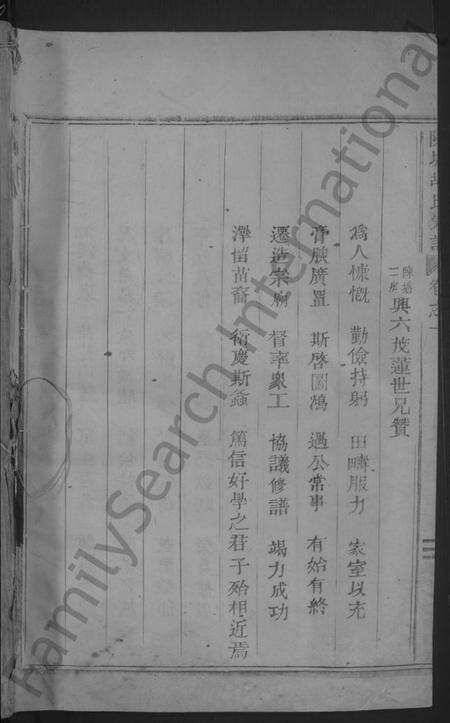 氏宗譜 卷之一
陳塘二房 興六茂蓮世兄贊
為人慷慨 勤儉持躬 田疇服力 家室以充
膏腴廣置 斯啓圖鴻 遇公常事 有始有終
遷造宗廟 督率衆工 協議修譜 竭力成功
澤留苗裔 衍慶斯螽 篤信好學之君子殆相近焉
FamilySearch International